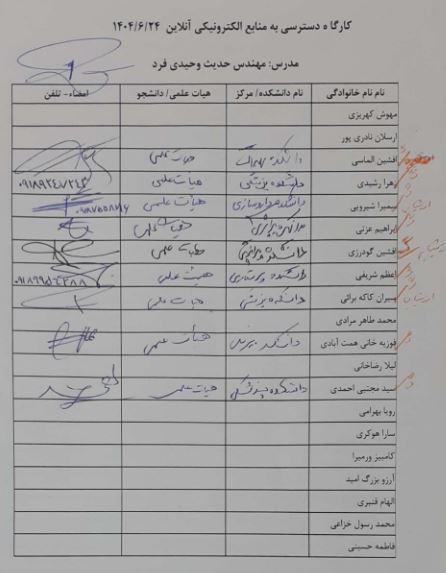 کارگاه دسترسی به منابع الکترونیکی آنلاین ۱۴۰۴/۶/۲۴
مدرس: مهندس حدیث وحیدی فرد
نام نام خانوادگی نام دانشکده/ مرکز هیات علمی/ دانشجو امضاء- تلفن
مهوش کهریزی
ارسلان نادری پور
افشین الماسی دانشکده بهداشت هیات علمی
زهرا رشیدی دانشکده پزشکی هیات علمی
سمیرا شیرویی دانشکده داروسازی هیات علمی
ابراهیم عزتی هیات علمی
افشین گودرزی دانشکده هیات علمی
اعظم شریفی دانشکده پرستاری هیئت علمی
سیران کاکه برائی دانشکده پزشکی هیات علمی
محمد طاهر مرادی
فوزیه خانی همت آبادی دانشکده هیات علمی
لیلا رضاخانی
سید مجتبی احمدی دانشکده پزشکی هیات علمی
رویا بهرامی
سارا هوکری
کامبیز ورمیرا
آرزو بزرگ امید
الهام قنبری
محمد رسول خزاعی
فاطمه حسینی